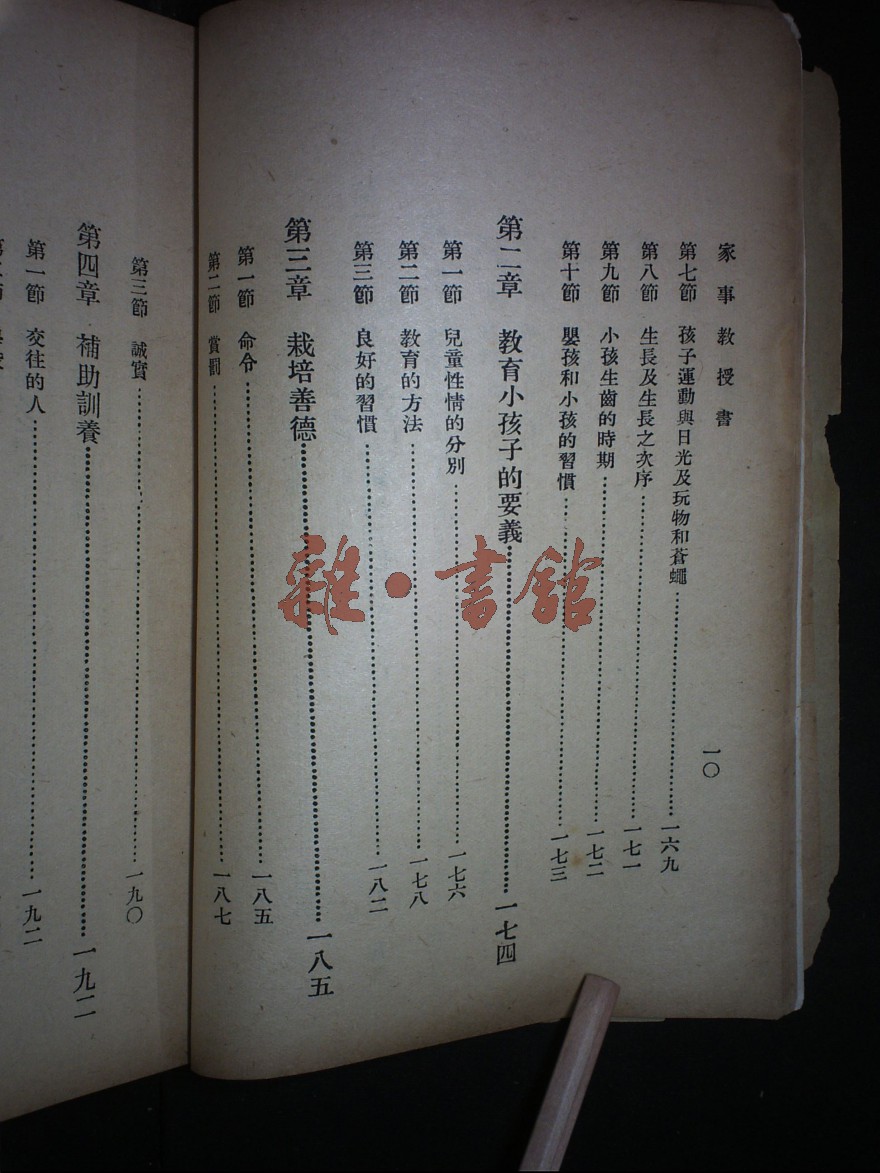 家事教授書
一〇
第七節 孩子運動與日光及玩物和蒼蠅……一六九
第八節 生長及生長之次序……一七一
第九節 小孩生齒的時期……一七二
第十節 嬰孩和小孩的習慣……一七三
第二章 教育小孩子的要義……一七四
第一節 兒童性情的分別……一七六
第二節 教育的方法……一七八
第三節 良好的習慣……一八二
第三章 栽培善德……一八五
第一節 命令……一八五
第二節 賞罰……一八七
第三節 誠實……一九〇
第四章 補助訓養……一九二
第一節 交往的人……一九二
雜·書館